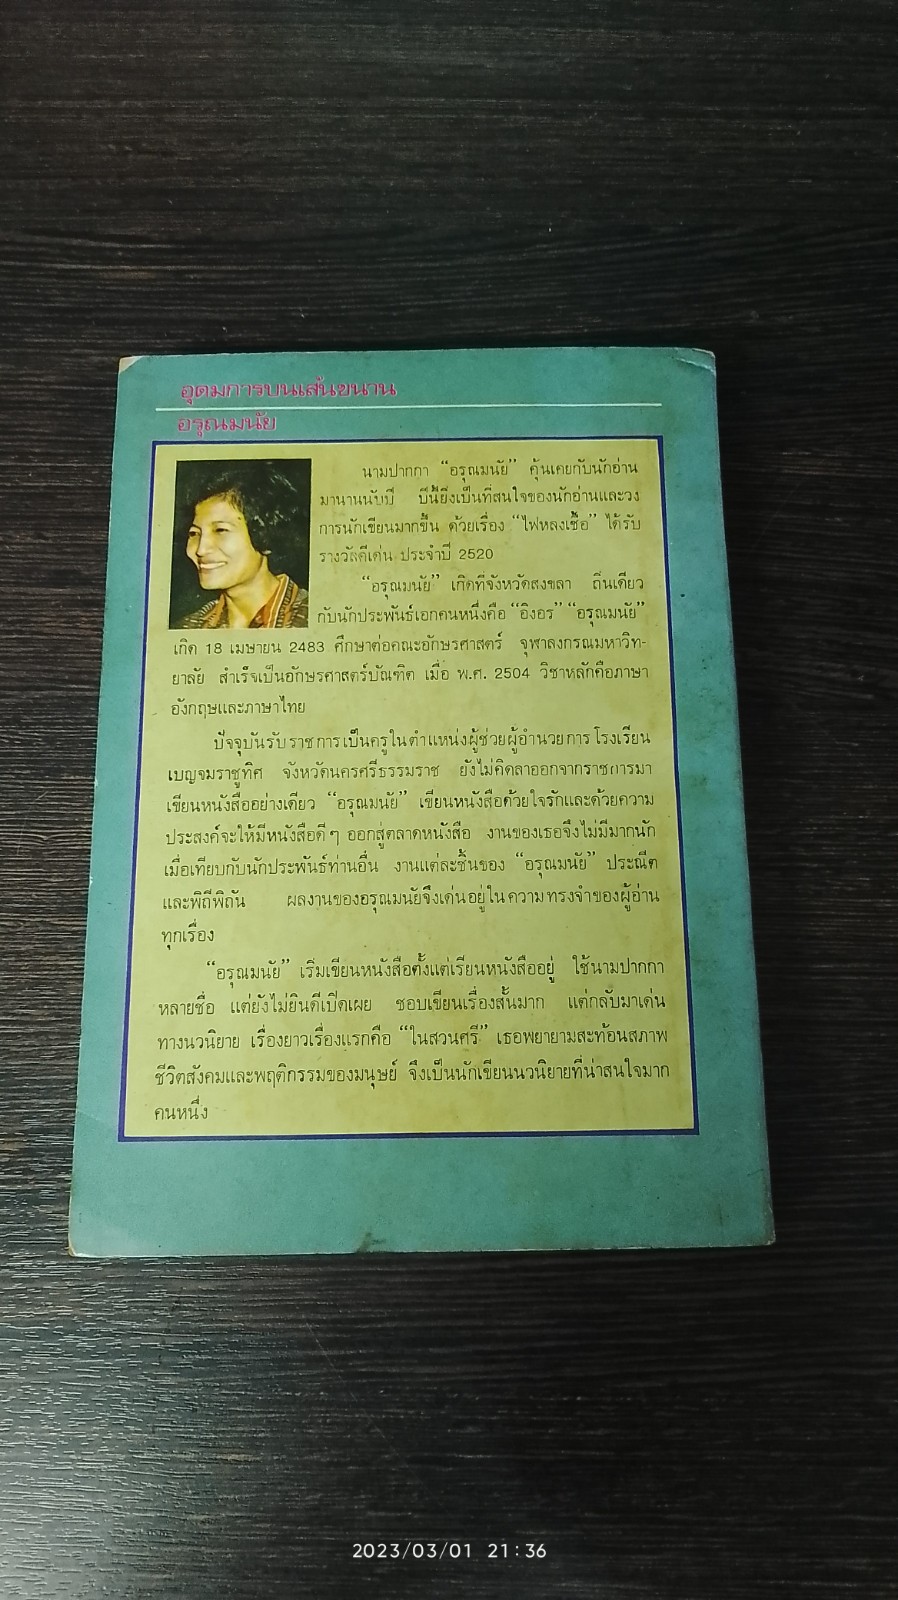 อุดมการบนเส้นขนาน
อรุณมนัย
นามปากกา “อรุณมนัย” คุ้นเคยกับนักอ่าน
มานานนับปี ปีนี้ยิ่งเป็นที่สนใจของนักอ่านและวง
การนักเขียนมากขึ้น ด้วยเรื่อง “ไฟหลงเชื้อ” ได้รับ
รางวัลดีเด่น ประจำปี 2520
“อรุณมนัย” เกิดที่จังหวัดสงขลา ถิ่นเดียว
กับนักประพันธ์เอกคนหนึ่งคือ “อิงอร” “อรุณมนัย”
เกิด 18 เมษายน 2483 ศึกษาต่อคณะอักษรศาสตร์ จุฬาลงกรณมหาวิท-
ยาลัย สำเร็จเป็นอักษรศาสตร์บัณฑิต เมื่อ พ.ศ. 2504 วิชาหลักคือภาษา
อังกฤษและภาษาไทย
ปัจจุบันรับราชการเป็นครูในตำแหน่งผู้ช่วยผู้อำนวยการ โรงเรียน
เบญจมราชูทิศ จังหวัดนครศรีธรรมราช ยังไม่คิดลาออกจากราชการมา
เขียนหนังสืออย่างเดียว “อรุณมนัย” เขียนหนังสือด้วยใจรักและด้วยความ
ประสงค์จะให้มีหนังสือดีๆ ออกสู่ตลาดหนังสือ งานของเธอจึงไม่มีมากนัก
เมื่อเทียบกับนักประพันธ์ท่านอื่น งานแต่ละชิ้นของ “อรุณมนัย” ประณีต
และพิถีพิถัน ผลงานของอรุณมนัยจึงเด่นอยู่ในความทรงจำของผู้อ่าน
ทุกเรื่อง
“อรุณมนัย” เริ่มเขียนหนังสือตั้งแต่เรียนหนังสืออยู่ ใช้นามปากกา
หลายชื่อ แต่ยังไม่ยินดีเปิดเผย ชอบเขียนเรื่องสั้นมาก แต่กลับมาเด่น
ทางนวนิยาย เรื่องยาวเรื่องแรกคือ “ในสวนศรี” เธอพยายามสะท้อนสภาพ
ชีวิตสังคมและพฤติกรรมของมนุษย์ จึงเป็นนักเขียนนวนิยายที่น่าสนใจมาก
คนหนึ่ง
2023/03/01 21:36